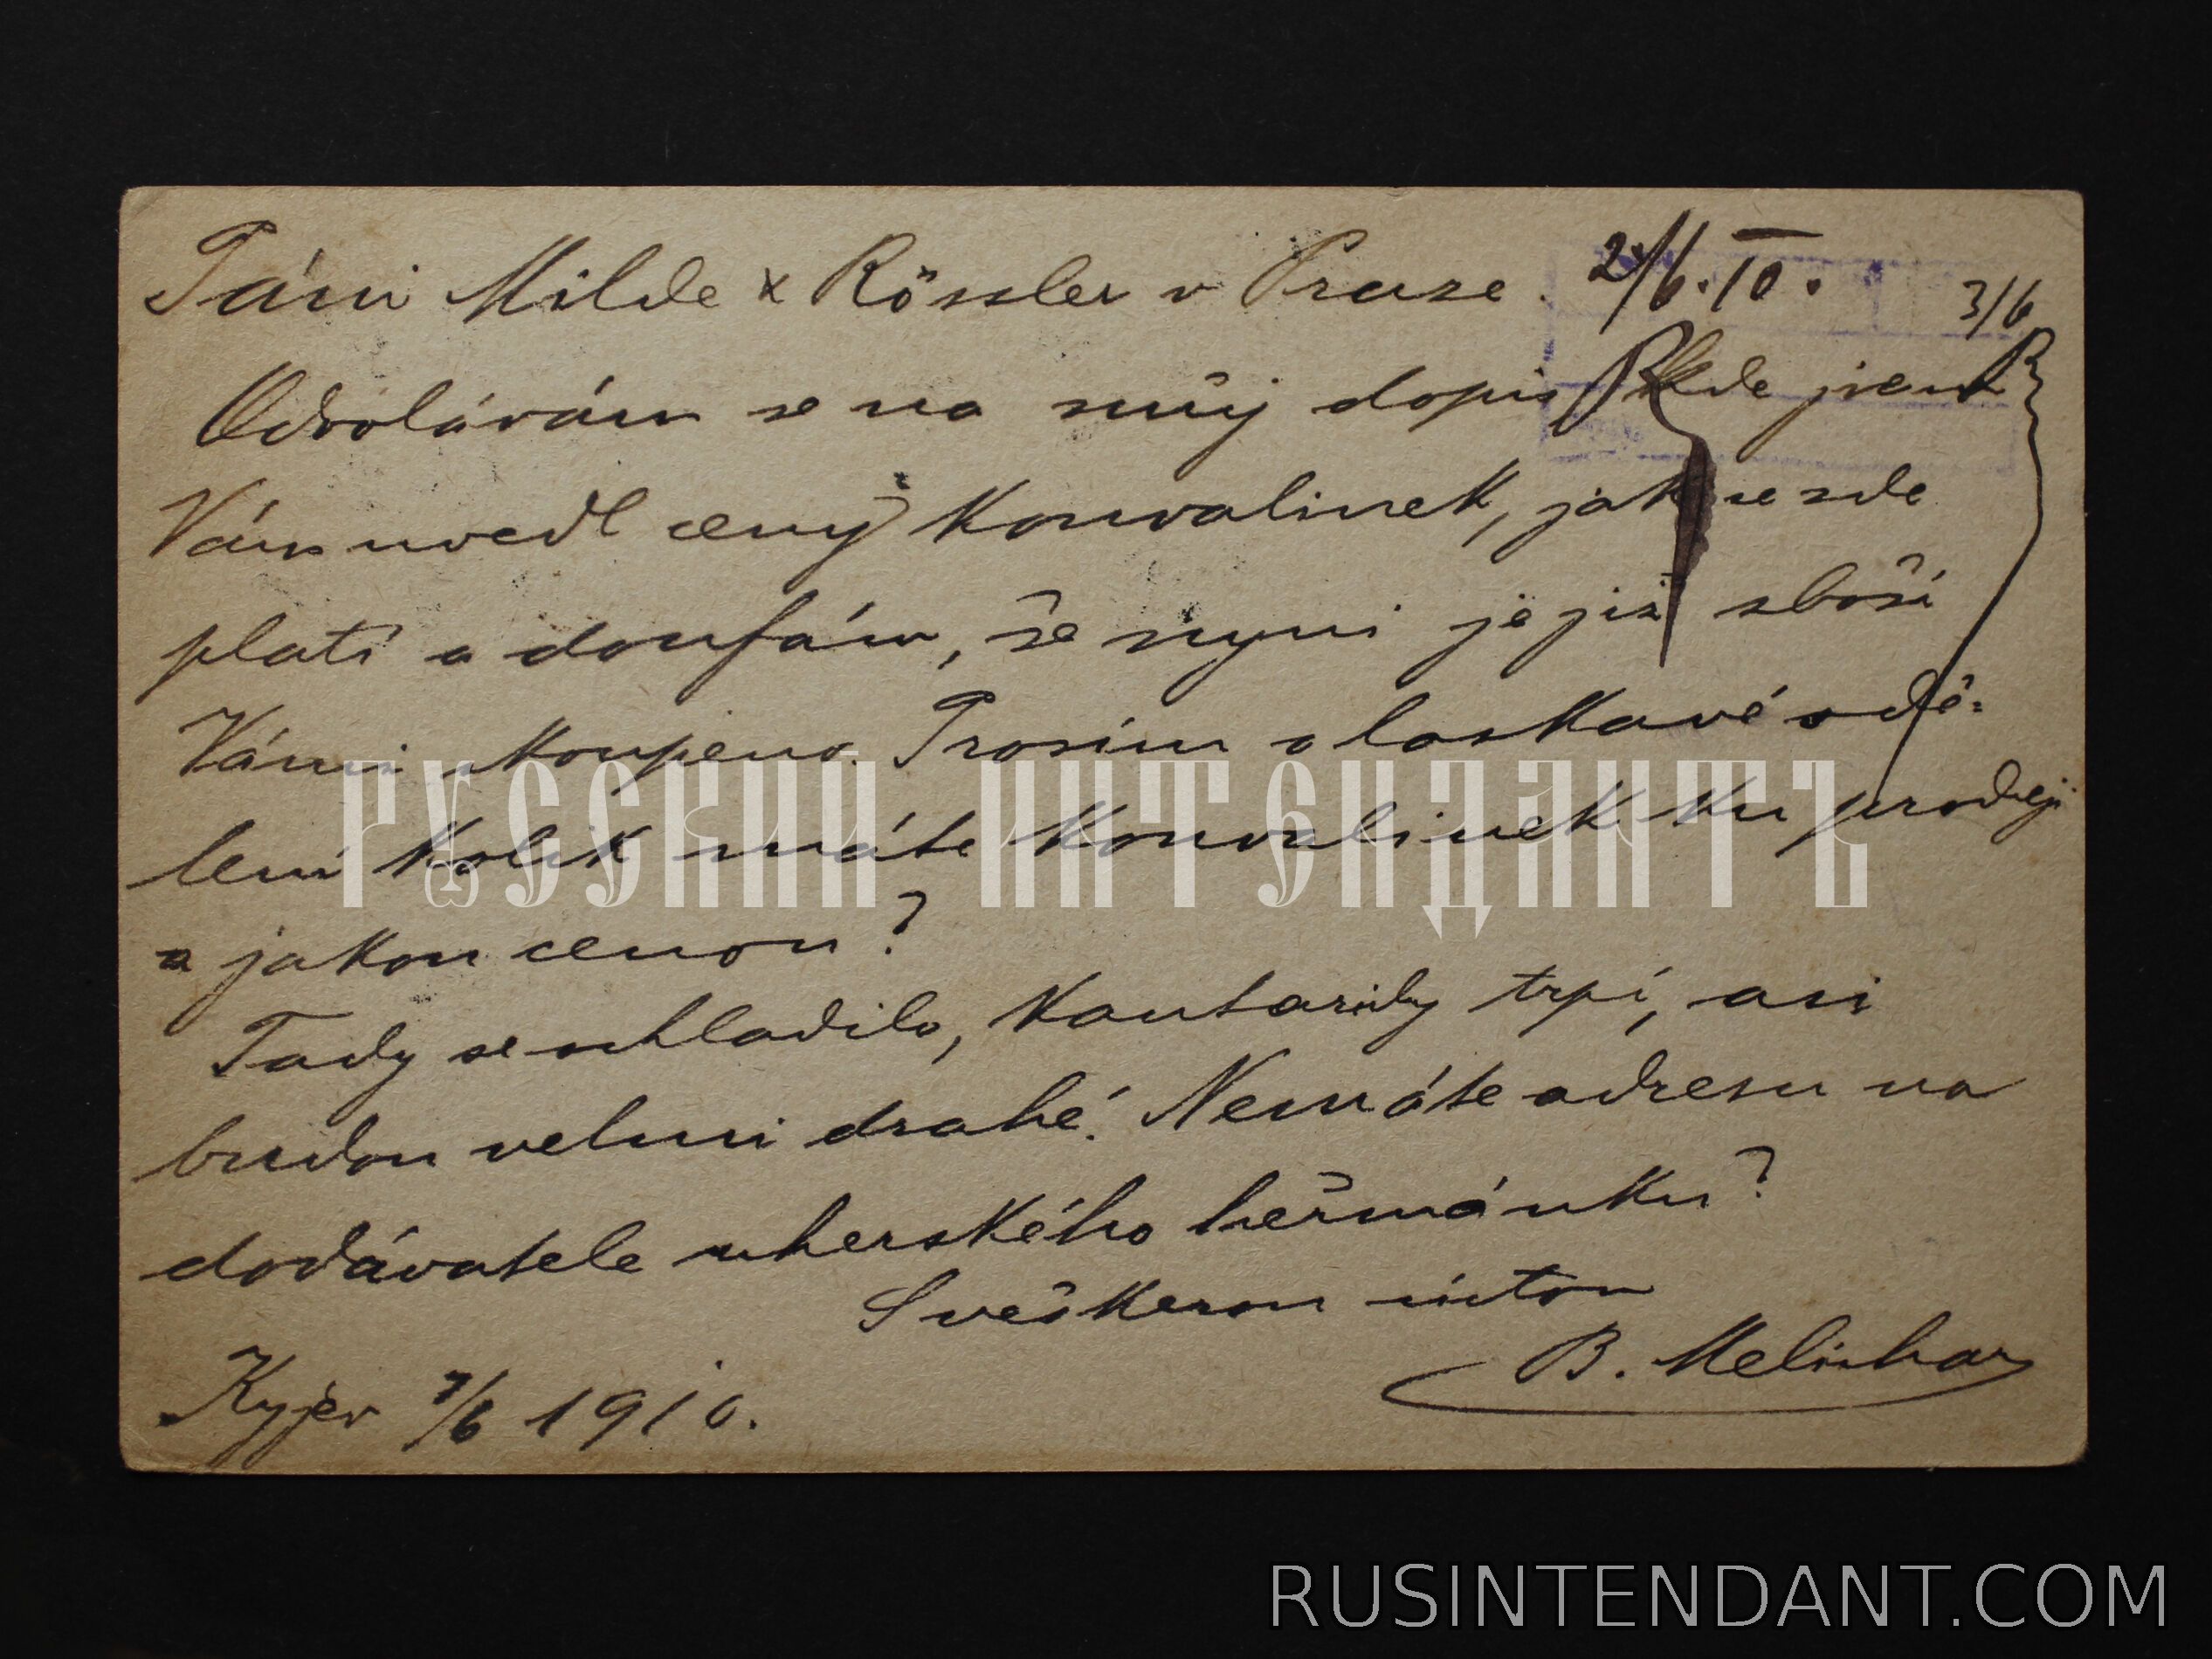 Páni Milde & Rössler v Praze. 2/6. 10. 3/6
Odvolávám se na můj dopis kde jsem
Vám uvedl ceny konvalinek, jak se zde
platí a doufám, že nyni je již zboží
Vámi koupeno. Prosím o laskavé sdě-
lení kolik máte konvalinek ku prodeji
a jakou cenou?
Tady se ochladilo, kantaridy trpí, asi
budou velmi drahé. Nemáte adresu na
dodávatele uherského heřmánku?
S veškerou úctou
B. Melichar
Kyjev 7/6 1910.
РУССКИЙ ИНТЕНДАНТЪ
RUSINTENDANT.COM